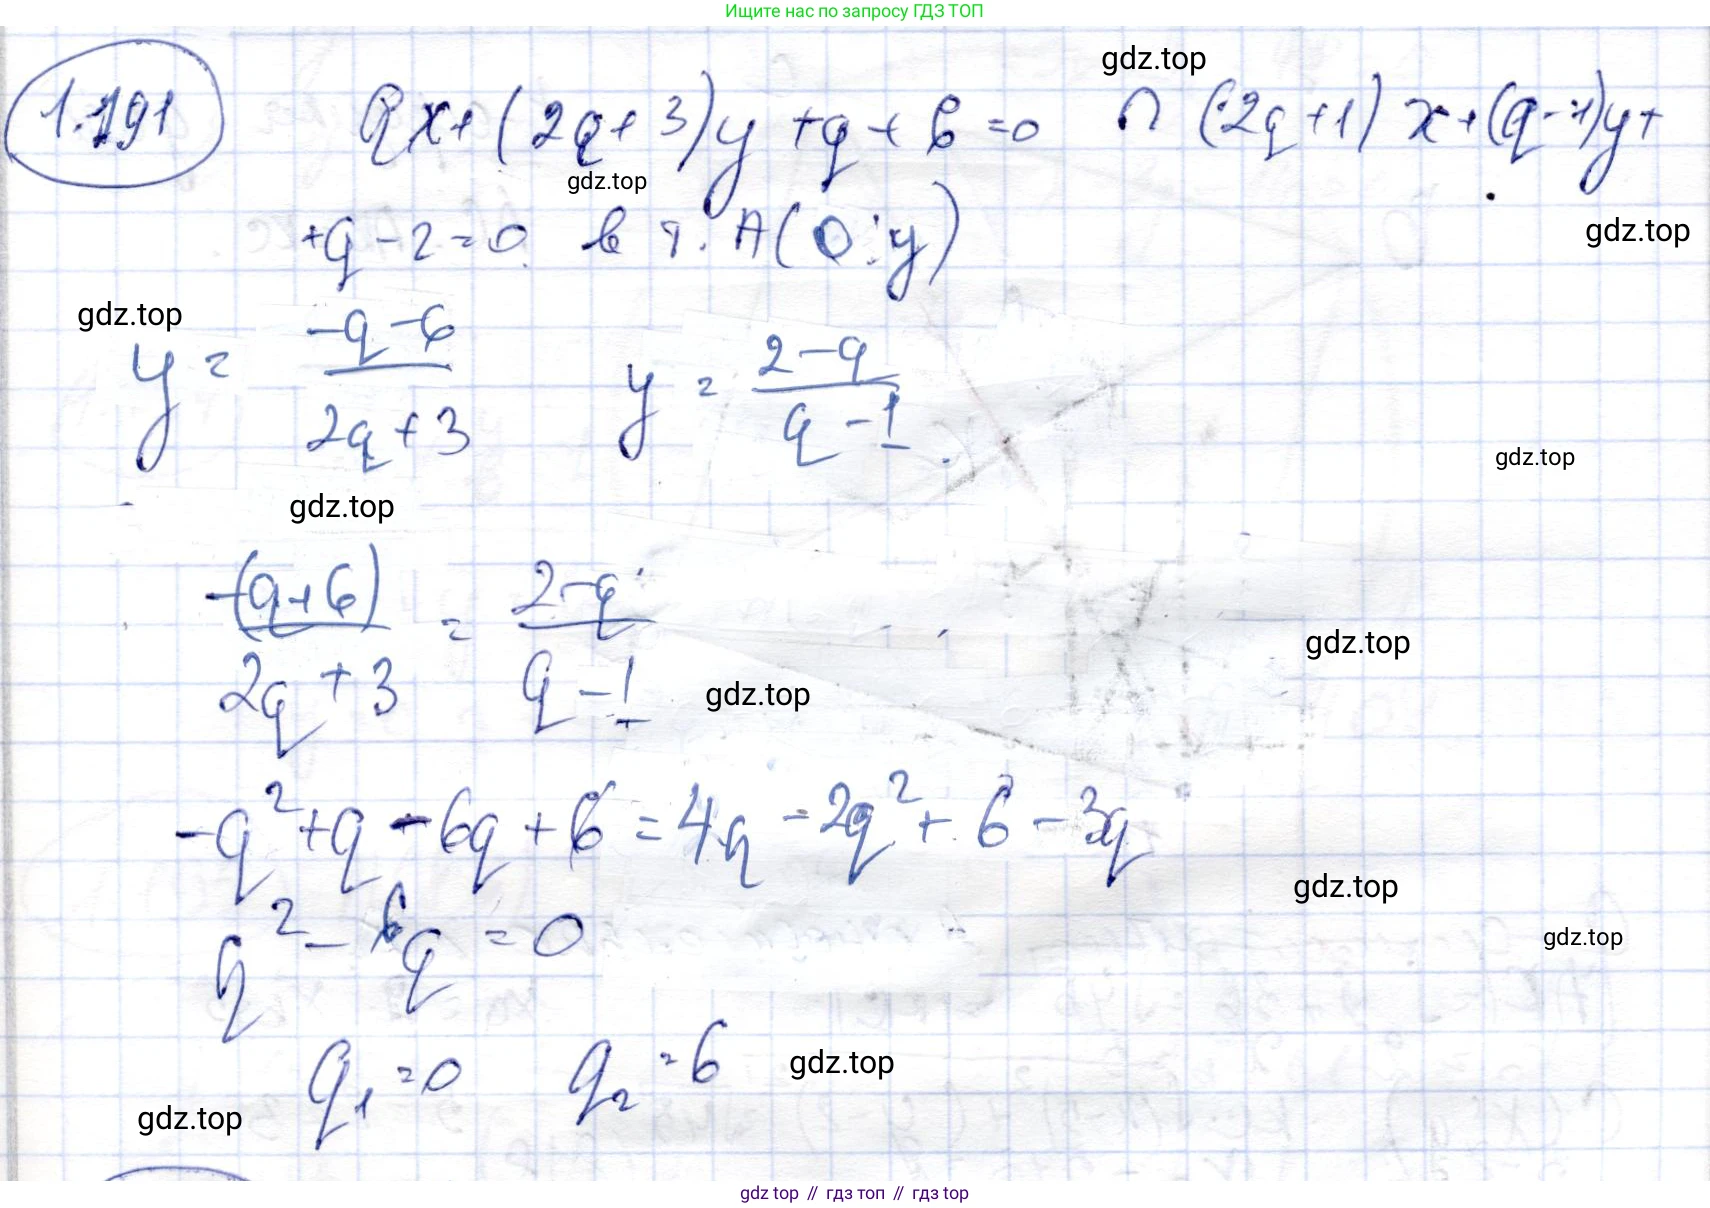 Ищите нас по запросу ГДЗ ТОП
gdz.top
1.191 qx+(2q+3)y+q+6=0 ∩ (2q+1)x+(q-1)y+
gdz.top
+q-2=0 в т. A(0;y)
gdz.top
gdz.top
y = (-q-6)/(2q+3) y = (2-q)/(q-1)
gdz.top
gdz.top
-(q+6)/(2q+3) = (2-q)/(q-1)
gdz.top
gdz.top
-q²+q-6q+6=4q-2q²+6-3q
gdz.top
q²-6q=0
gdz.top
q₁=0 q₂=6
gdz.top
gdz.top
gdz top // гдз топ // гдз top